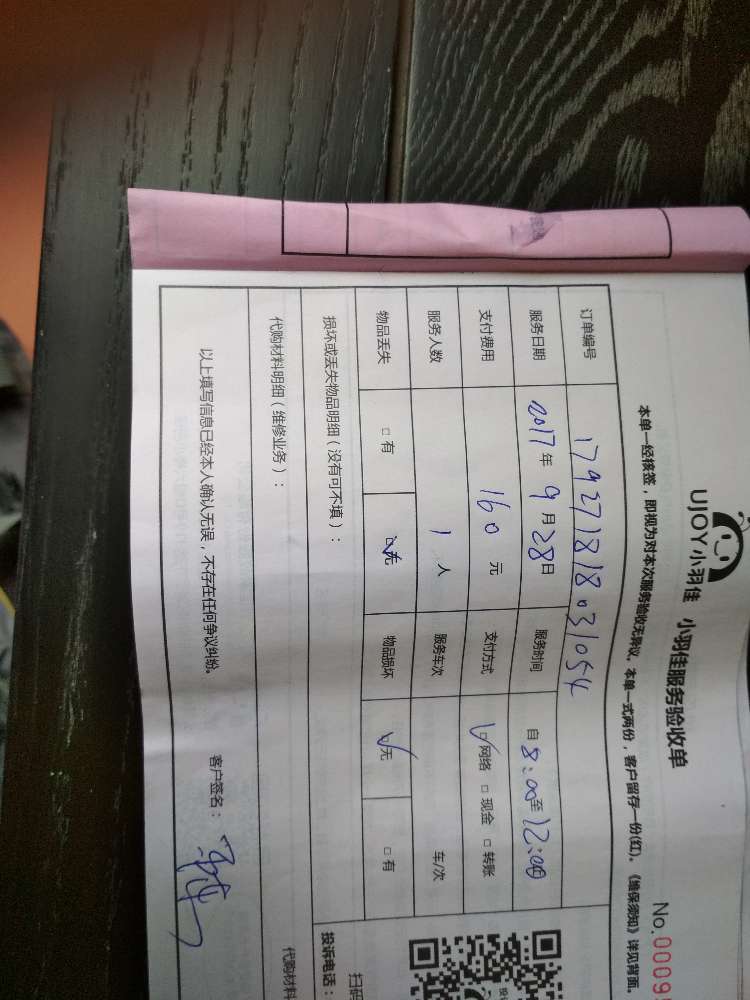 UJOY小羽佳 小羽佳服务验收单
No.0009
本单一经核签，即视为对本次服务验收无异议。本单一式两份，客户留存一份(红)。《维保须知》详见背面。
订单编号 179271818031054
服务日期 2017年9月28日 服务时间 自8:00至12:00
支付费用 160元 支付方式 ☑网络 □现金 □转账
服务人数 1人 服务车次 车/次
物品丢失 □有 ☑无 物品损坏 ☑无 □有
损坏或丢失物品明细（没有可不填）：
代购材料明细（维修业务）：
以上填写信息已经本人确认无误，不存在任何争议纠纷。
客户签名：
扫码
投诉电话：
代购材料